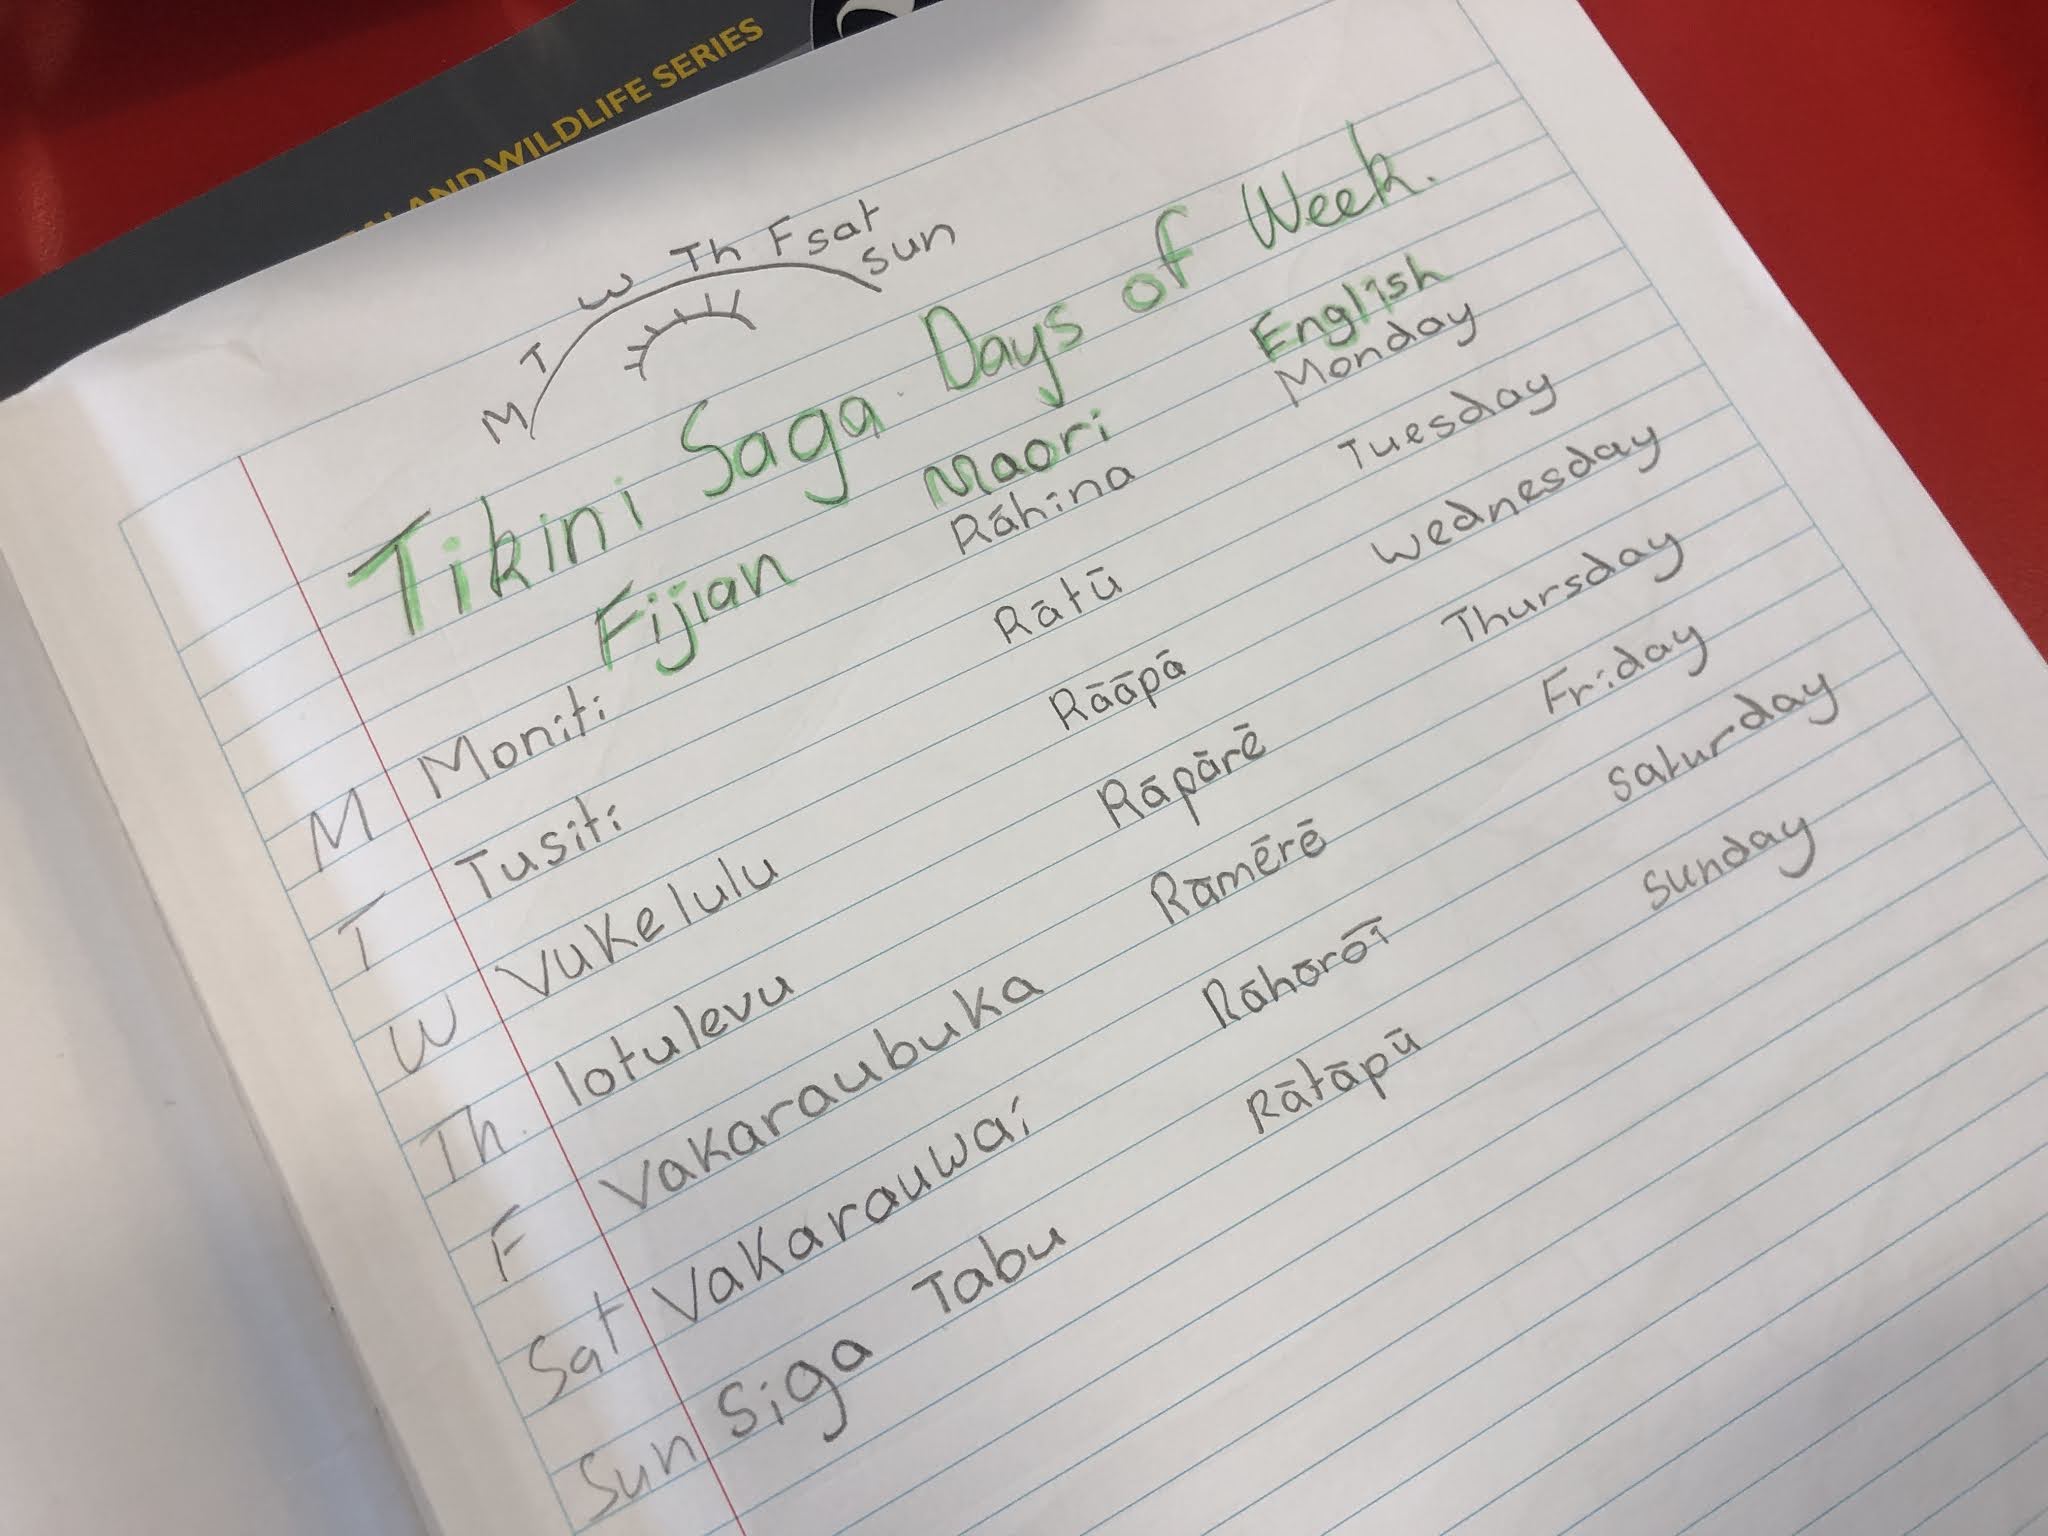 AND WILDLIFE SERIES
M T W Th F sat sun
Tikini Saga Days of Week.
Fijian Maori English
M Moniti Rāhina Monday
T Tusiti Rātū Tuesday
W Vukelulu Rāāpā Wednesday
Th. lotulevu Rāpārē Thursday
F Vakaraubuka Rāmērē Friday
Sat Vakarauwai Rāhōrōī Saturday
Sun Siga Tabu Rātāpū Sunday